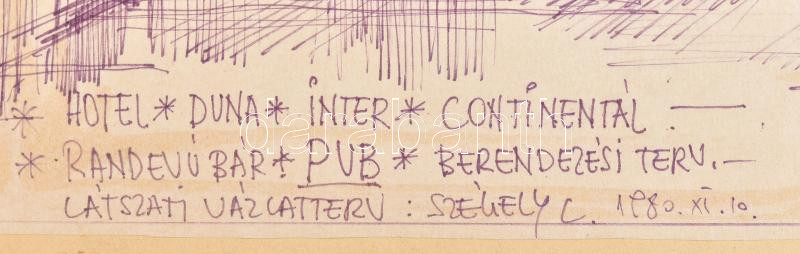 * HOTEL * DUNA * INTER * CONTINENTAL. —.
* RANDEVÚ BÁR * PUB * BERENDEZÉSI TERV. —
LÁTSZATI VÁZLATTERV : SZÉKELY L. 1980. XI. 10.
darabanth